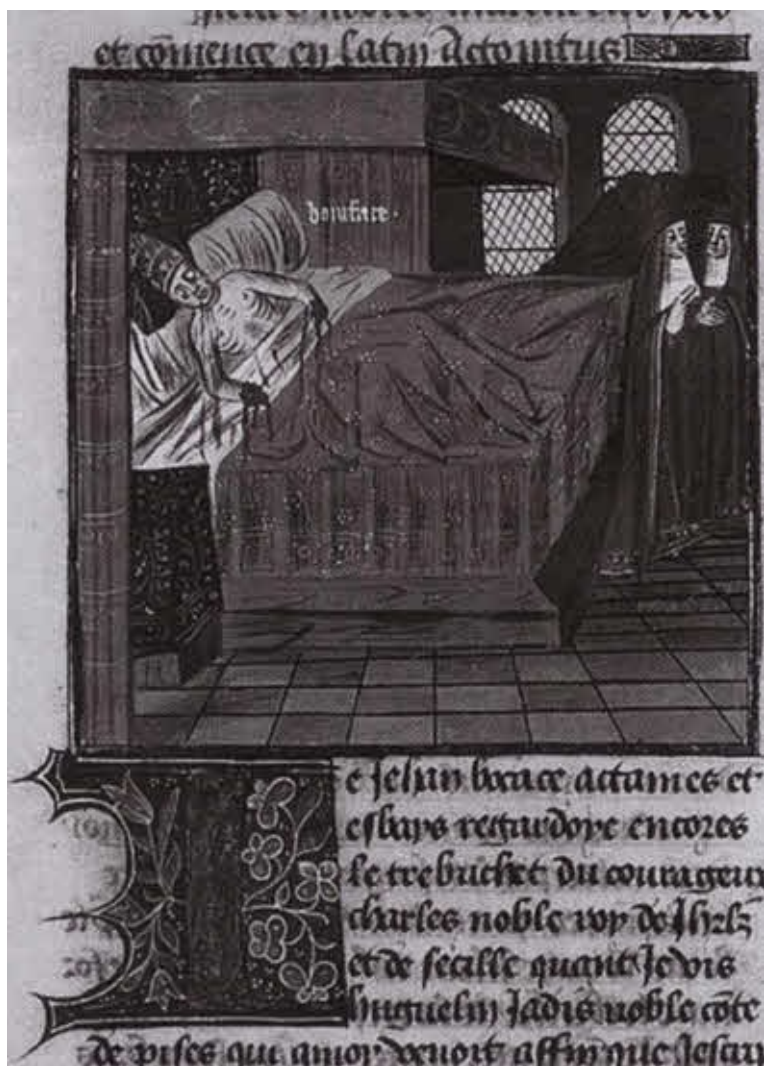 et cōmence en latin Actonitus
boniface.
e Jehan bocace actaines et
esbays regardoye encores
le trebuchet du courageux
charles noble roy de Jhrlz
et de secille quant Je vis
huguelin Jadis noble cōte
de pises qui a moy venoit affin que Jescri